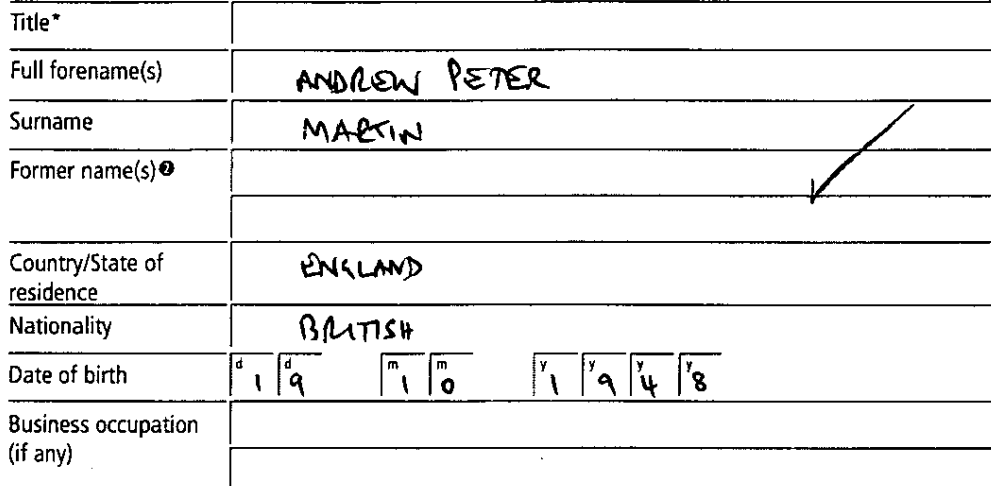 Title*
Full forename(s) ANDREW PETER
Surname MARTIN
Former name(s)❷
Country/State of
residence ENGLAND
Nationality BRITISH
Date of birth d1 d9 m1 m0 y1 y9 y4 y8
Business occupation
(if any)